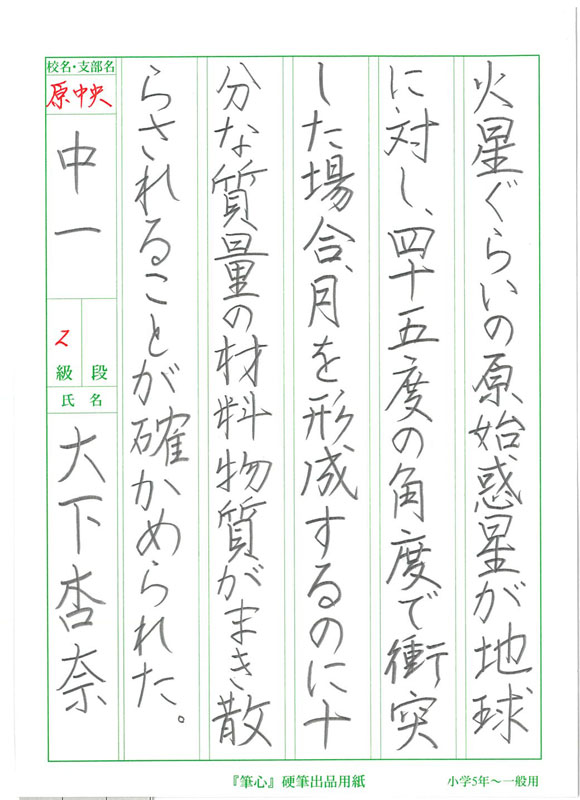 火星ぐらいの原始惑星が地球
に対し、四十五度の角度で衝突
した場合、月を形成するのに十
分な質量の材料物質がまき散
らされることが確かめられた。
校名・支部名
原中央
中一
段
2級
氏名
大下杏奈
『筆心』硬筆出品用紙
小学5年～一般用